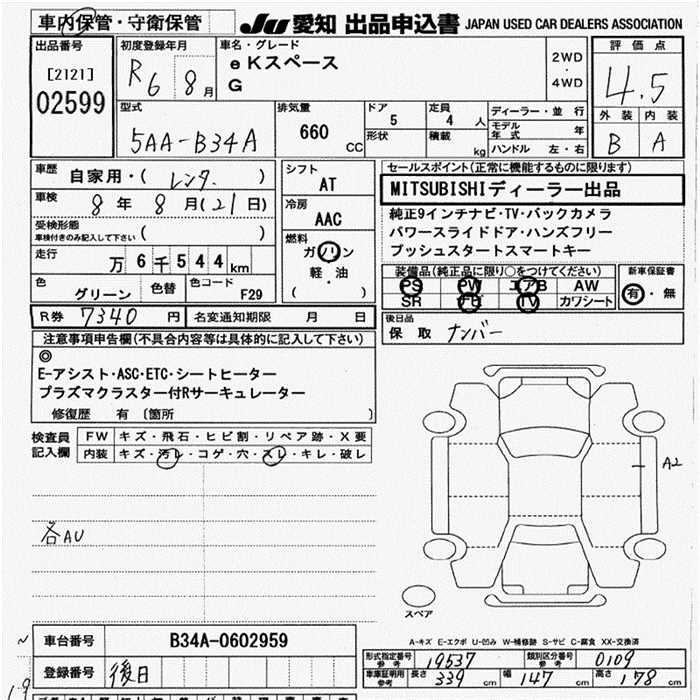 車内保管・守衛保管
JU 愛知 出品申込書 JAPAN USED CAR DEALERS ASSOCIATION
出品番号
[2121]
02599
初度登録年月
R6 8月
車名・グレード
eKスペース
G
2WD
・
4WD
評価点
4.5
外装 内装
B A
型式
5AA-B34A
排気量
660 CC
ドア
5
形状
定員
4 人
積載 kg
ディーラー・並行
モデル年式 年
ハンドル 左・右
車歴
自家用・( レンタ )
車検
8年 8月(21日)
受検形態
車検付きのみ記入して下さい ( )
走行
万6千544km
色
グリーン
色替
色コード
F29
シフト
AT
冷房
AAC
燃料
ガソリン
軽・油
( )
セールスポイント(正常に機能するものに限ります)
MITSUBISHIディーラー出品
純正9インチナビ・TV・バックカメラ
パワースライドドア・ハンズフリー
プッシュスタートスマートキー
装備品(純正品に限り○をつけてください)
PS PW エアB AW
SR TV カワシート
新車保証書
有・無
R券 7340円 名変通知期限 月 日
後日品
保取 ナンバー
注意事項申告欄(不具合内容等は具体的に記入して下さい)
◎
E-アシスト・ASC・ETC・シートヒーター
プラズマクラスター付Rサーキュレーター
修復歴 有 〔箇所 〕
検査員記入欄
FW キズ・飛石・ヒビ割・リペア跡・X要
内装 キズ・汚レ・コゲ・穴・スレ・キレ・破レ
各AU
A2
スペア
A-キズ E-エクボ U-凹み W-補修跡 S-サビ C-腐食 XX-交換済
車台番号 B34A-0602959
登録番号 後日
形式指定番号 参考 19537
類別区分番号 参考 0109
車庫証明用 参考 長さ 339 cm 幅 147 cm 高さ 178 cm